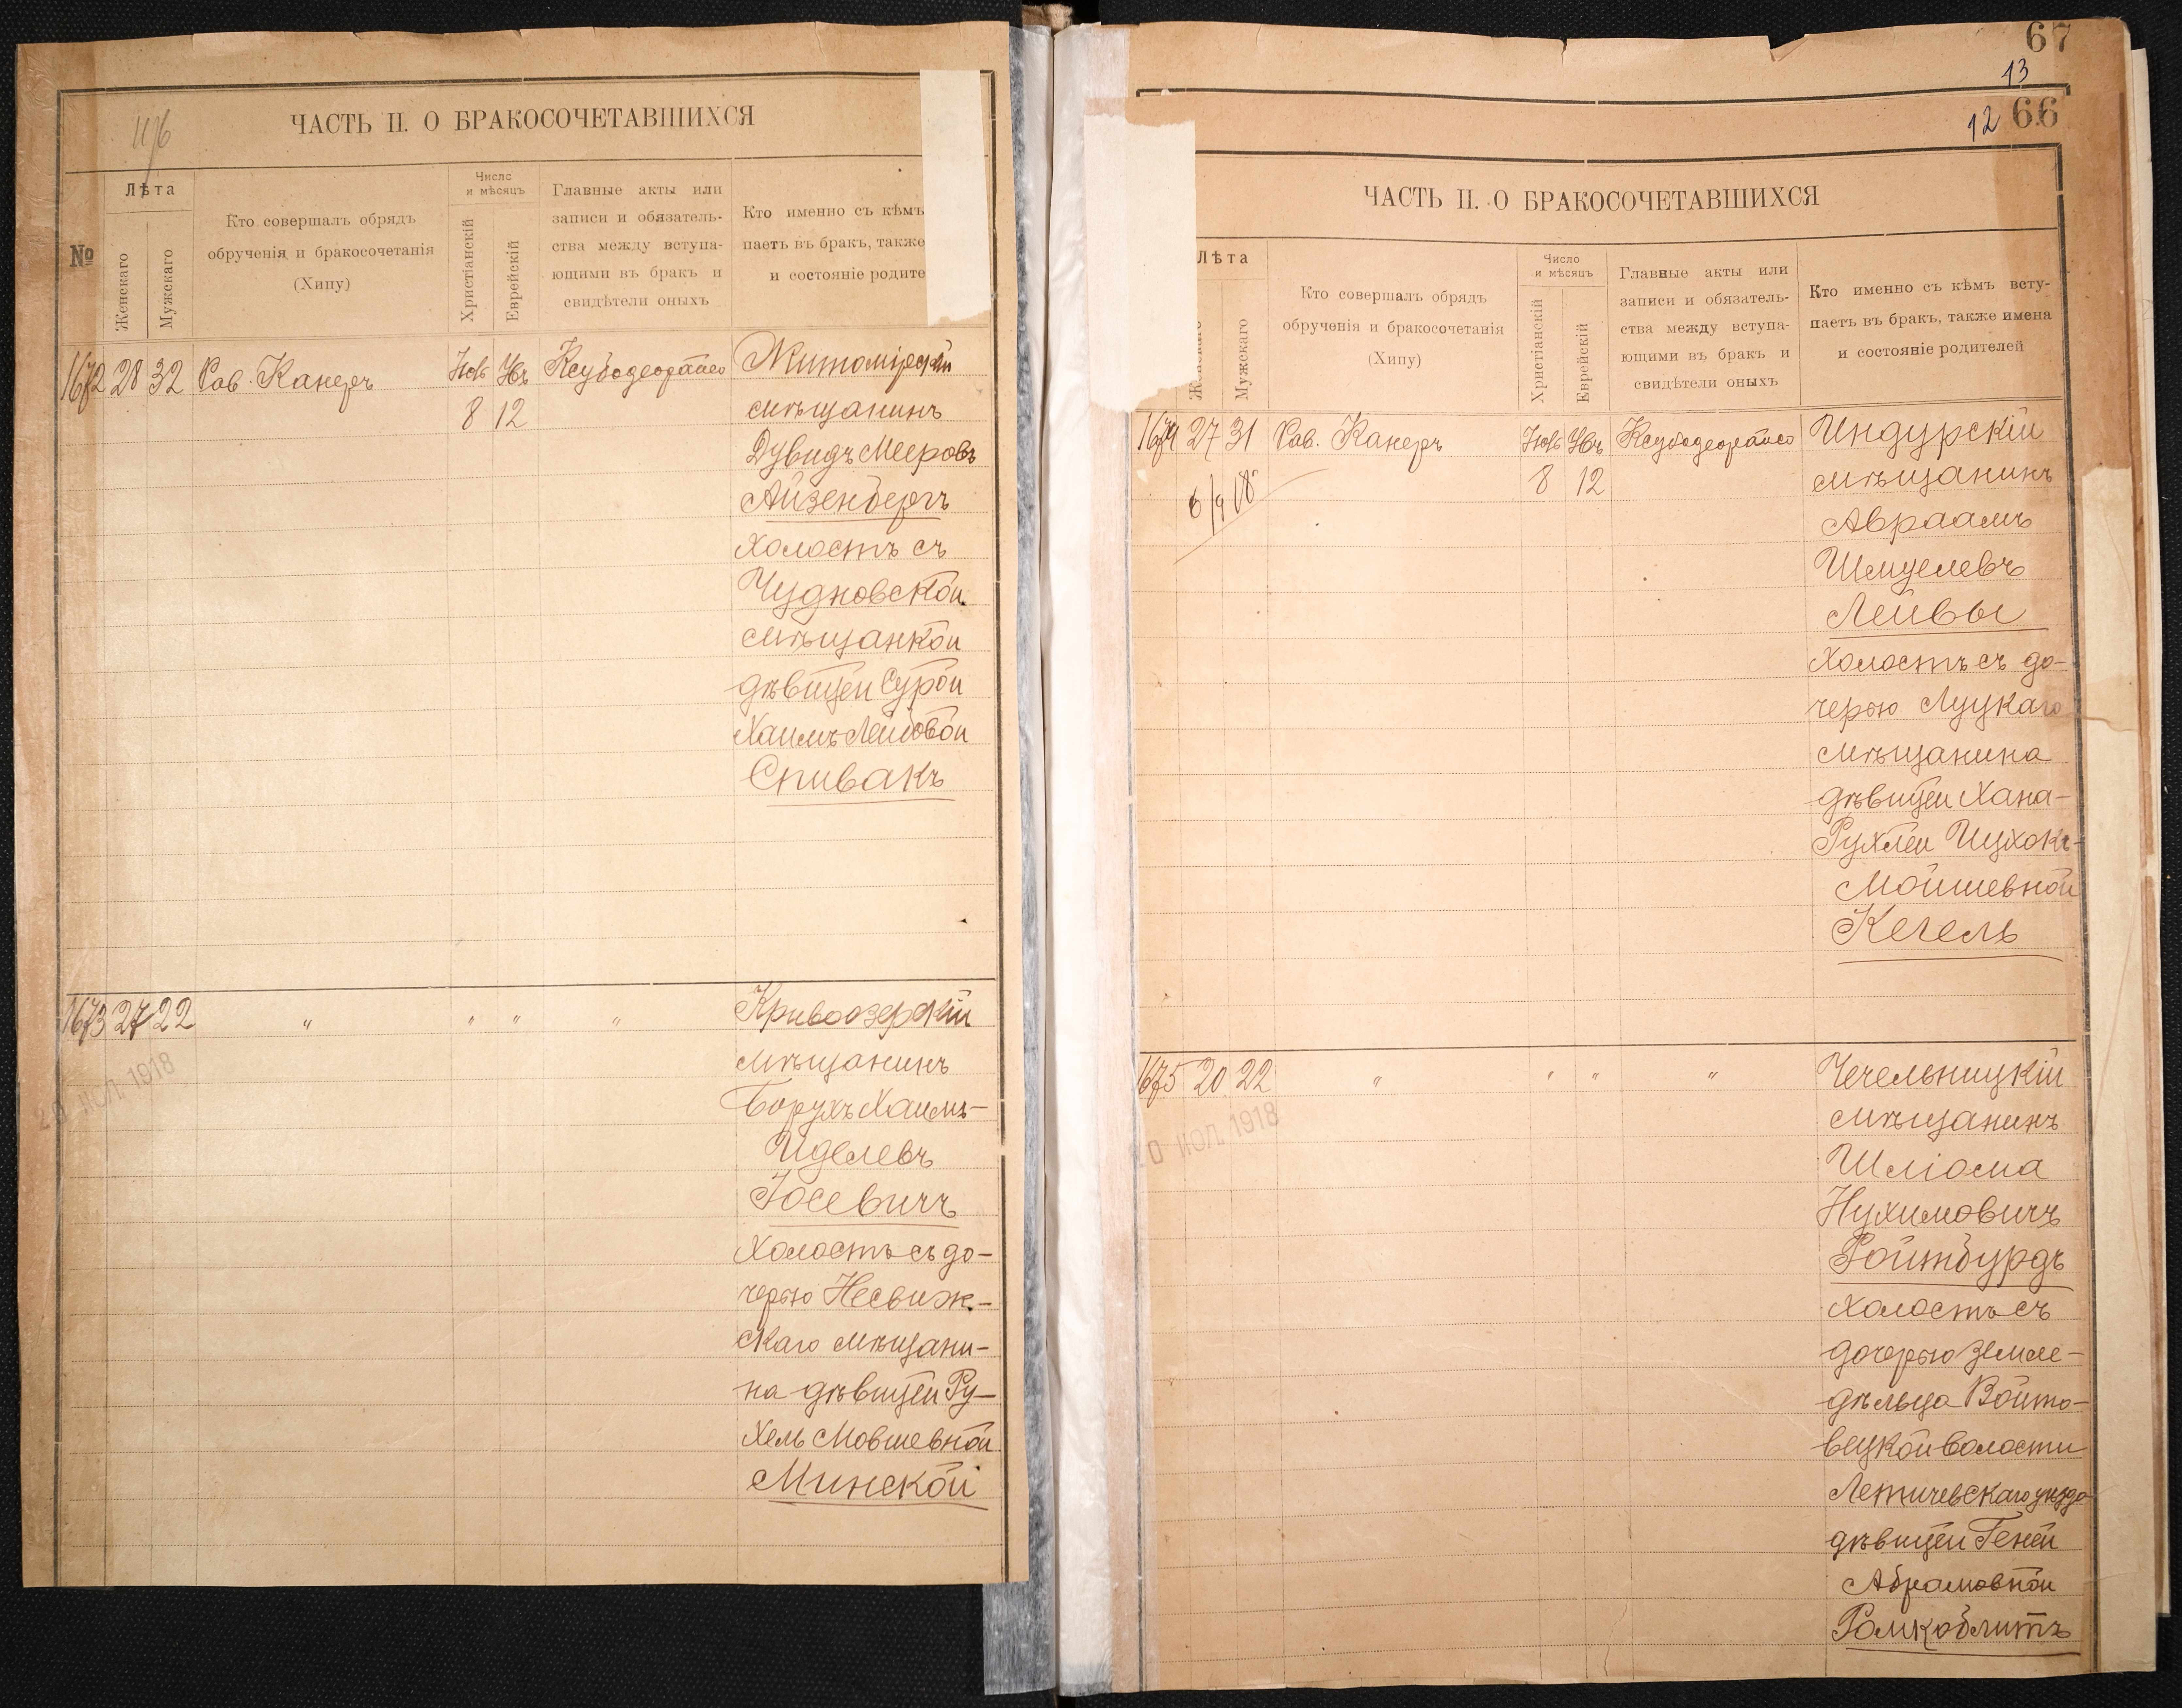 11/6
ЧАСТЬ II. О БРАКОСОЧЕТАВШИХСЯ
№
Лѣта
Женскаго
Мужскаго
Кто совершалъ обрядъ
обрученія и бракосочетанія
(Хипу)
Число
и мѣсяцъ
Христіанскій
Еврейскій
Главные акты или
записи и обязатель-
ства между вступа-
ющими въ бракъ и
свидѣтели оныхъ
Кто именно съ кѣмъ
паетъ въ бракъ, также
и состояніе родите
1672 28 32 Рав. Канеръ
8 12
Житомірскій
мѣщанинъ
Дувидъ Мееровъ
Айзенбергъ
холостъ съ
Чудновской
мѣщанкой
дѣвицей Сурой
Хаимъ Лейбовой
Спивакъ
1673 27 22 " " " "
Кривоозерскій
мѣщанинъ
Борухъ Хаимъ-
Иделевъ
Іосевичъ
холостъ съ до-
черью Несвиж-
скаго мѣщани-
на дѣвицей Ру-
хель Мовшевной
Минской
20 ІЮЛ 1918
67
13
66
12
ЧАСТЬ II. О БРАКОСОЧЕТАВШИХСЯ
Лѣта
Мужскаго
Кто совершалъ обрядъ
обрученія и бракосочетанія
(Хипу)
Число
и мѣсяцъ
Христіанскій
Еврейскій
Главные акты или
записи и обязатель-
ства между вступа-
ющими въ бракъ и
свидѣтели оныхъ
Кто именно съ кѣмъ всту-
паетъ въ бракъ, также имена
и состояніе родителей
1674 27 31 Рав. Канеръ
8 12
6/9 18
Индурскій
мѣщанинъ
Авраамъ
Шмуелевъ
Лейвы
холостъ съ до-
черью Луцкаго
мѣщанина
дѣвицей Хана-
Рухлей Ицхокъ-
Мойшевной
Кегель
1675 20 22 " " " "
Чечельницкій
мѣщанинъ
Шліома
Нухимовичъ
Ройтбурдъ
холостъ съ
дочерью земле-
дѣльца Войто-
вецкой волости
Летичевскаго уѣзда
дѣвицей Геней
Абрамовной
20 ІЮЛ 1918